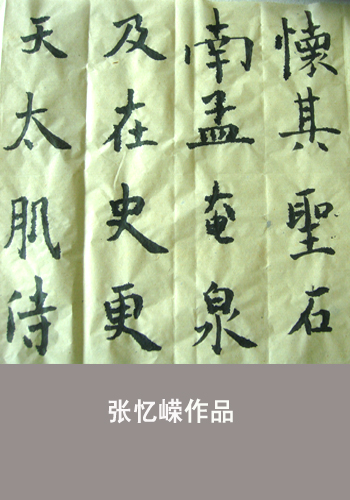 懐其聖石
南孟奄泉
及在史更
天太肌待
张忆嵘作品